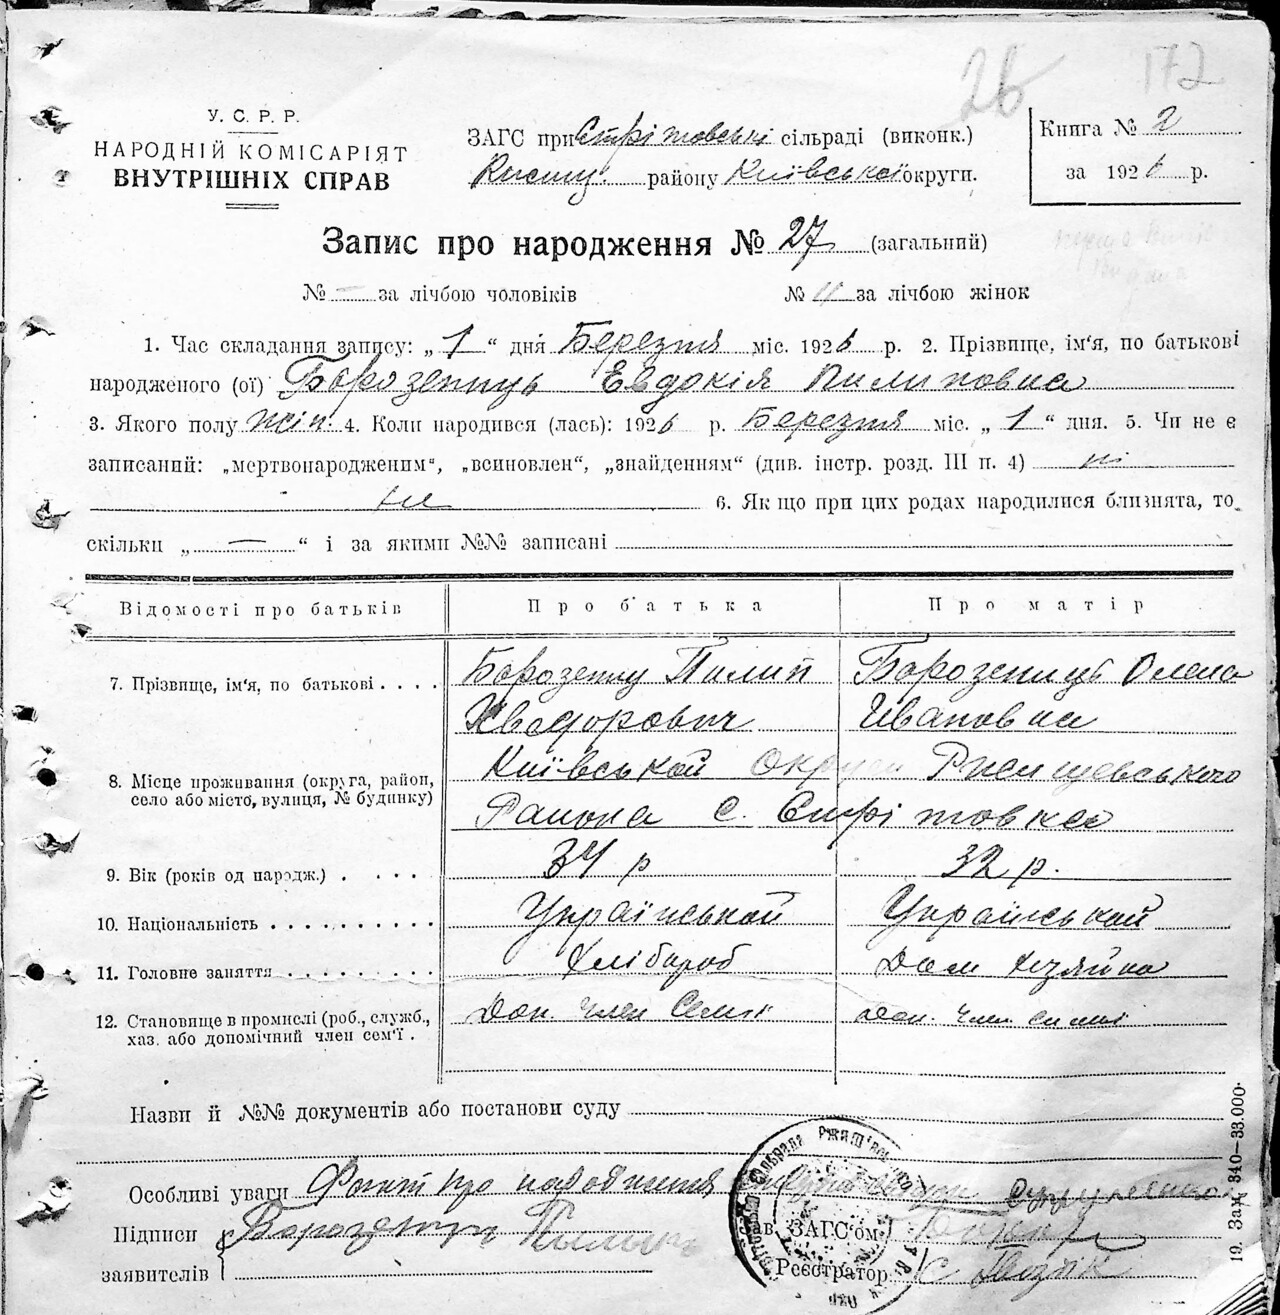 26 172
У. С. Р. Р.
НАРОДНІЙ КОМІСАРІЯТ
ВНУТРІШНІХ СПРАВ
ЗАГС при Стрітовські сільраді (виконк.)
району Київської округи.
Книга № 2
за 1926 р.
Запис про народження № 27 (загальний)
№ — за лічбою чоловіків № 11 за лічбою жінок
1. Час складання запису: „ 1 “ дня Березня міс. 1926 р. 2. Прізвище, ім'я, по батькові
народженого (ої) Борозенець Евдокія Пилиповна
3. Якого полу жін. 4. Коли народився (лась): 1926 р. Березня міс. „ 1 “ дня. 5. Чи не є
записаний: „мертвонародженим“, „всиновлен“, „знайденням“ (див. інстр. розд. III п. 4) ні
6. Як що при цих родах народилися близнята, то
скільки „ — “ і за якими №№ записані
Відомості про батьків Про батька Про матір
7. Прізвище, ім'я, по батькові . . . . Борозенец Пилип Борозенець Олена
Хведорович Ивановна
8. Місце проживання (округа, район, село або місто, вулиця, № будинку) Київської Округи Ржищевського
Района с. Стрітовка
9. Вік (років од народж.) . . . . . 34 р 32 р.
10. Національність . . . . . . . . . . Української Української
11. Головне заняття . . . . . . . . . Хлібороб Дом Хозяйка
12. Становище в промислі (роб., служб., хаз. або допомічний член сем'ї . Доп. член Семи Доп. член
Назви й №№ документів або постанови суду
Особливі уваги Факт про народження
Підписи заявителів Борозенец Пилип
Зав. ЗАГС'ом
Реєстратор
19. Зам. 340—33.000.